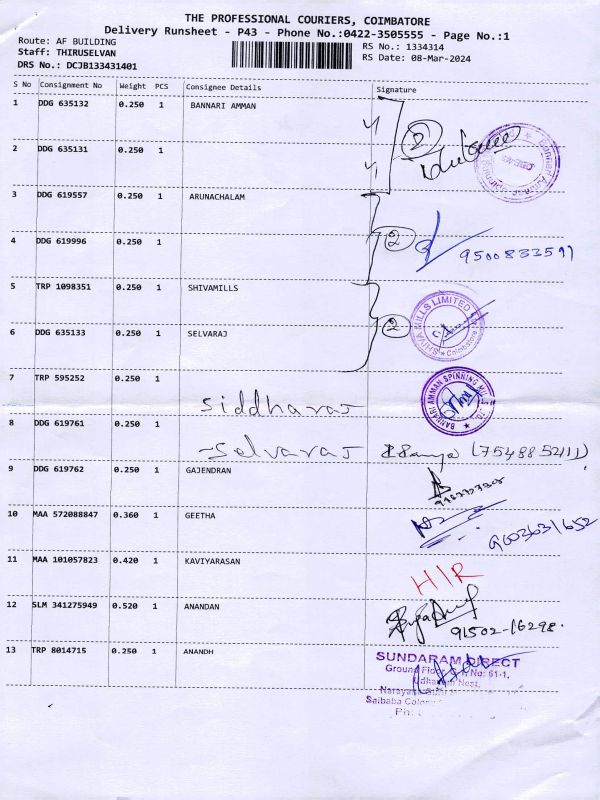 THE PROFESSIONAL COURIERS, COIMBATORE
Delivery Runsheet - P43 - Phone No.:0422-3505555 - Page No.:1
Route: AF BUILDING
Staff: THIRUSELVAN
DRS No.: DCJB133431401
RS No.: 1334314
RS Date: 08-Mar-2024
S No Consignment No Weight PCS Consignee Details Signature
1 DDG 635132 0.250 1 BANNARI AMMAN
2
2 DDG 635131 0.250 1
3 DDG 619557 0.250 1 ARUNACHALAM
4 DDG 619996 0.250 1 2 9500833591
5 TRP 1098351 0.250 1 SHIVAMILLS
SHIVA MILLS LIMITED
Coimbatore
6 DDG 635133 0.250 1 SELVARAJ 2
7 TRP 595252 0.250 1 Siddharaj
BANNARI AMMAN SPINNING MILLS
8 DDG 619761 0.250 1 Selvaraj (7548852411)
9 DDG 619762 0.250 1 GAJENDRAN
10 MAA 572088847 0.360 1 GEETHA
11 MAA 101057823 0.420 1 KAVIYARASAN H/R
12 SLM 341275949 0.520 1 ANANDAN 91502-16298.
13 TRP 8014715 0.250 1 ANANDH
SUNDARAM DIRECT
Ground Floor No: 61-1,
Nest,
Saibaba Colony
Ph: